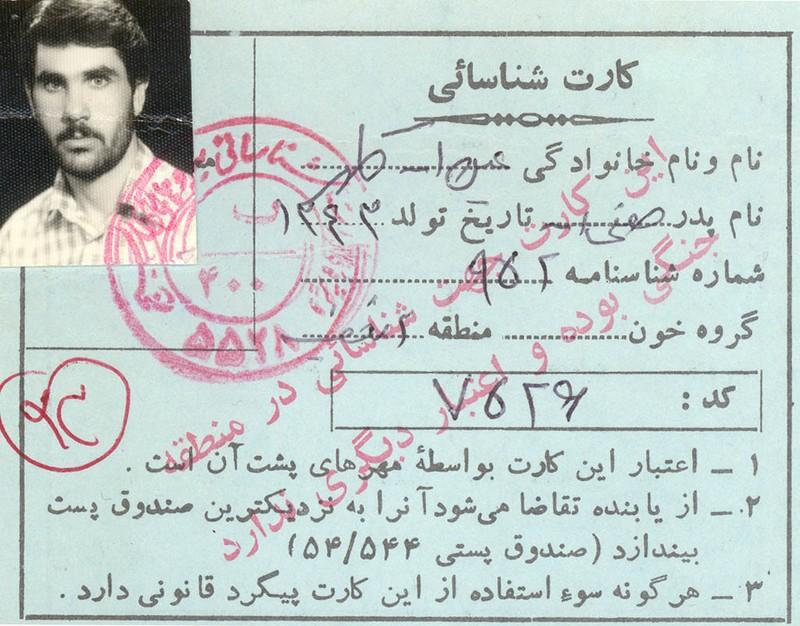 کارت شناسائی
نام ونام خانوادگی
نام پدر تاریخ تولد
شماره شناسنامه ۹۵۲
گروه خون منطقه
کد : ۷۵۲۶
۱ ــ اعتبار این کارت بواسطهٔ مهرهای پشت آن است .
۲ ــ از یابنده تقاضا می‌شود آنرا به نزدیکترین صندوق پست
بیندازد (صندوق پستی ۵۴/۵۴۴)
۳ ــ هرگونه سوء استفاده از این کارت پیگرد قانونی دارد .
این کارت جهت شناسائی در منطقه
جنگی بوده و اعتبار دیگری ندارد
شناسائی
۴۰۰
۵۵۲۸